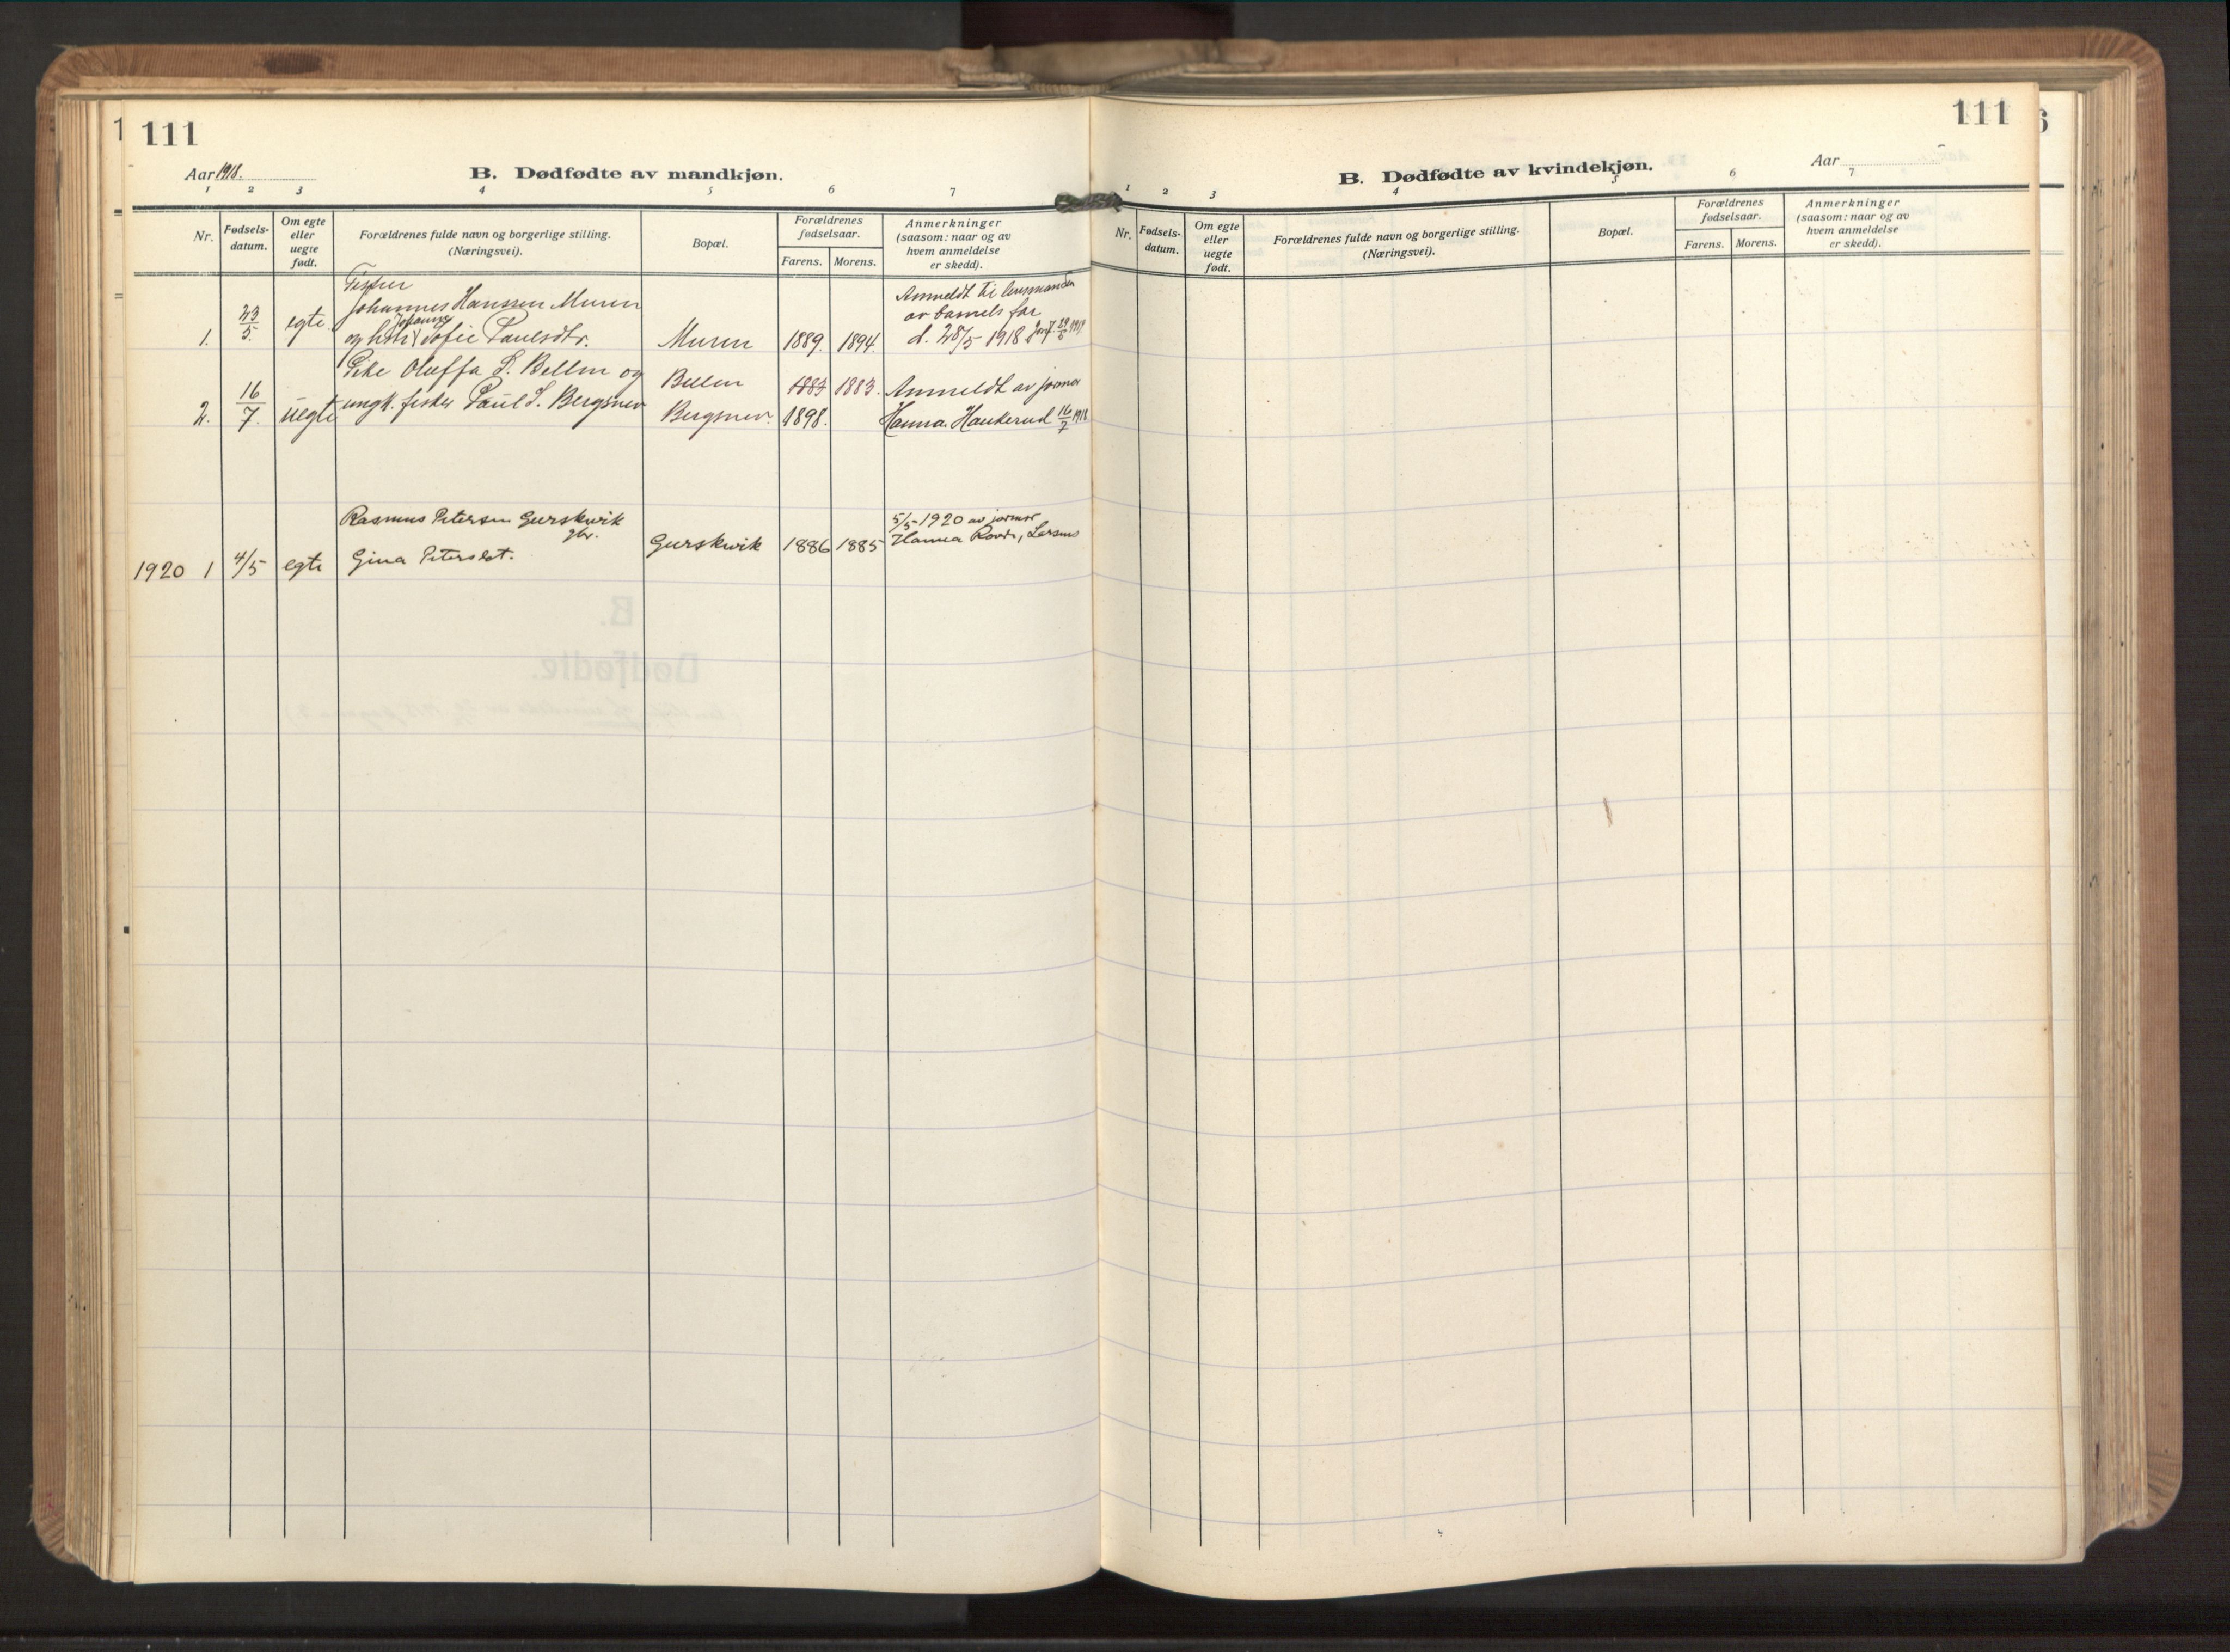 111
Aar 1918.
B. Dødfødte av mandkjøn.
1 2 3 4 5 6 7
Nr.
Fødsels-
datum.
Om egte
eller
uegte
født.
Forældrenes fulde navn og borgerlige stilling.
(Næringsvei).
Bopæl.
Forældrenes
fødselsaar.
Farens. Morens.
Anmerkninger
(saasom: naar og av
hvem anmeldelse
er skedd).
1. 23/5. egte
Fisker
Johannes Hanssen Muren
Johanne
og hustr Sofie Paulsdtr.
Muren 1889. 1894.
Anmeldt til lensmanden
av barnets far
d. 28/5 1918
2. 16/7. uegte
Pike Oluffa S. Bellen og
ungk. fisker Paul S. Bergsnev
Bellen
Bergsnev.
1883 1883.
1898.
Anmeldt av jormor
Hanna Haukerud 16/7 1918
1920 1 4/5 egte
Rasmus Petersen Gurskevik
gbr.
Gina Petersdt.
Gurskevik 1886 1885
5/5 1920 av jormor
Hanna Rovde, Larsnes
111
Aar
B. Dødfødte av kvindekjøn.
1 2 3 4 5 6 7
Nr.
Fødsels-
datum.
Om egte
eller
uegte
født.
Forældrenes fulde navn og borgerlige stilling.
(Næringsvei).
Bopæl.
Forældrenes
fødselsaar.
Farens. Morens.
Anmerkninger
(saasom: naar og av
hvem anmeldelse
er skedd).
B.
Dødfødte.